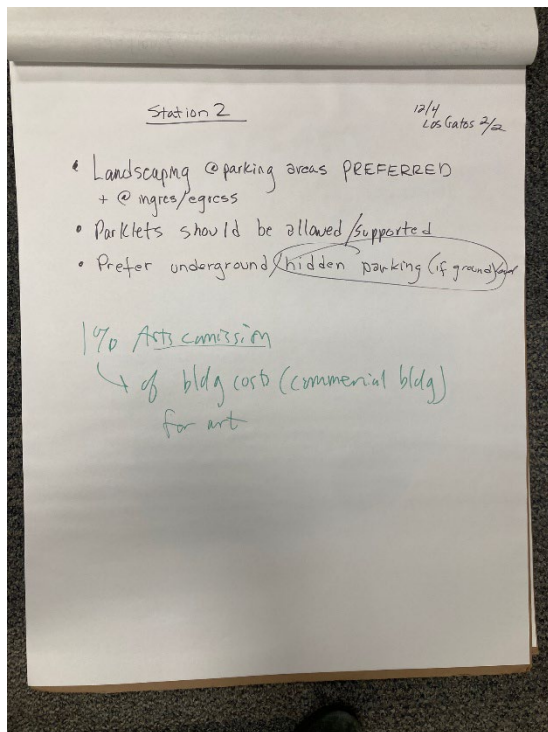 Station 2
12/4
Los Gatos 2/2
• Landscaping @ parking areas PREFERRED
+ @ ingres/egress
• Parklets should be allowed/supported
• Prefer underground/hidden parking (if ground)
1% Arts comission
↳ of bldg costs (commerial bldg)
for art